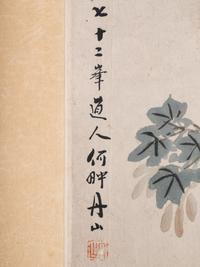 七十二峯道人何畔丹山